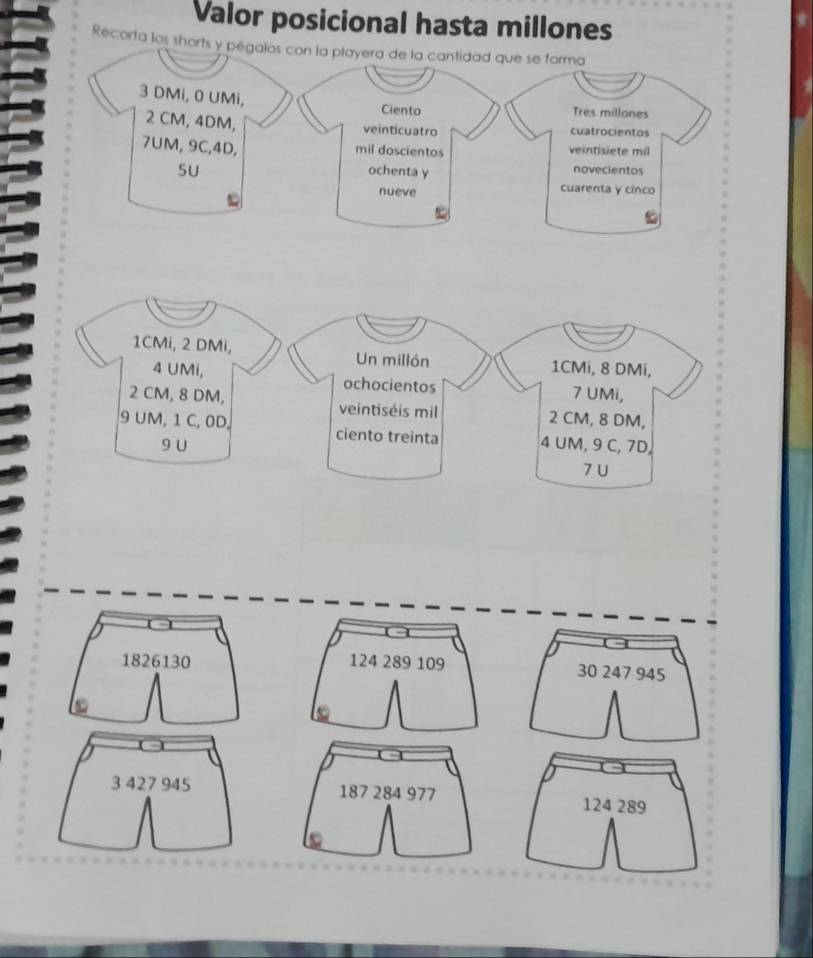 Valor posicional hasta millones
Recorta los shorts y pégalos con la playera de la cantidad que se forma
3 DMi, 0 UMi,
2 CM, 4DM,
7UM, 9C,4D,
5U
Ciento
veinticuatro
mil doscientos
ochenta y
nueve
Tres millones
cuatrocientos
veintisiete mil
novecientos
cuarenta y cinco
1CMi, 2 DMi,
4 UMi,
2 CM, 8 DM,
9 UM, 1 C, 0D,
9 U
Un millón
ochocientos
veintiséis mil
ciento treinta
1CMi, 8 DMi,
7 UMi,
2 CM, 8 DM,
4 UM, 9 C, 7D,
7 U
1826130
124 289 109
30 247 945
3 427 945
187 284 977
124 289